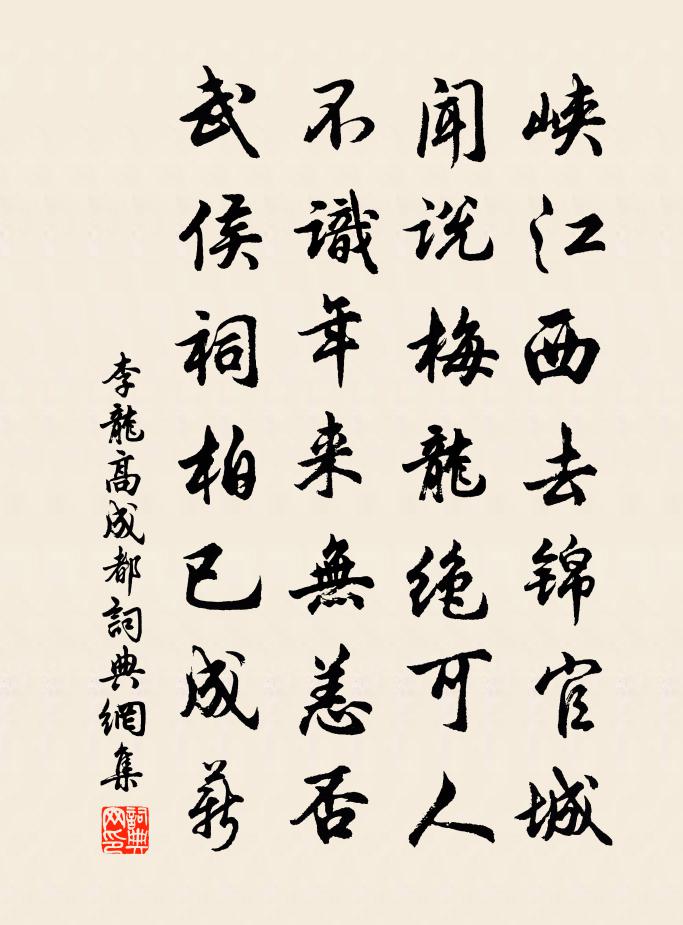 峡江西去锦官城
闻说梅龍绝可人
不識年来無恙否
武侯祠柏已成薪
李龍高成都詞典網集
詞典網印